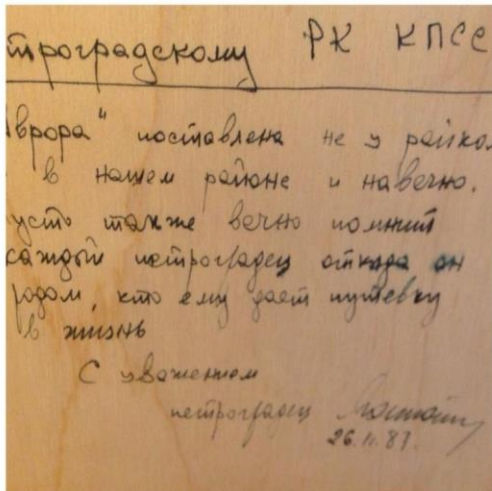 троградскому РК КПСС
Аврора" поставлена не у райко
в нашем районе и навечно.
усть также вечно помнит
каждый петроградец откуда он
родом, кто ему дает путевку
в жизнь
С уважением
петроградец
26.11.87.